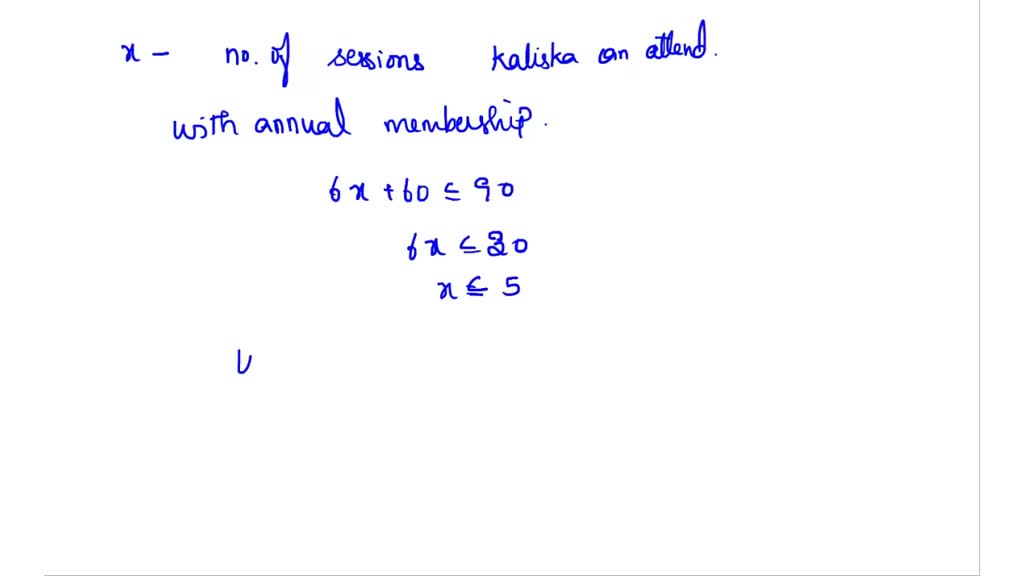 x – no. of sessions kaliska an attend.
with annual membership.
6x + 60 ≤ 90
6x ≤ 30
x ≤ 5